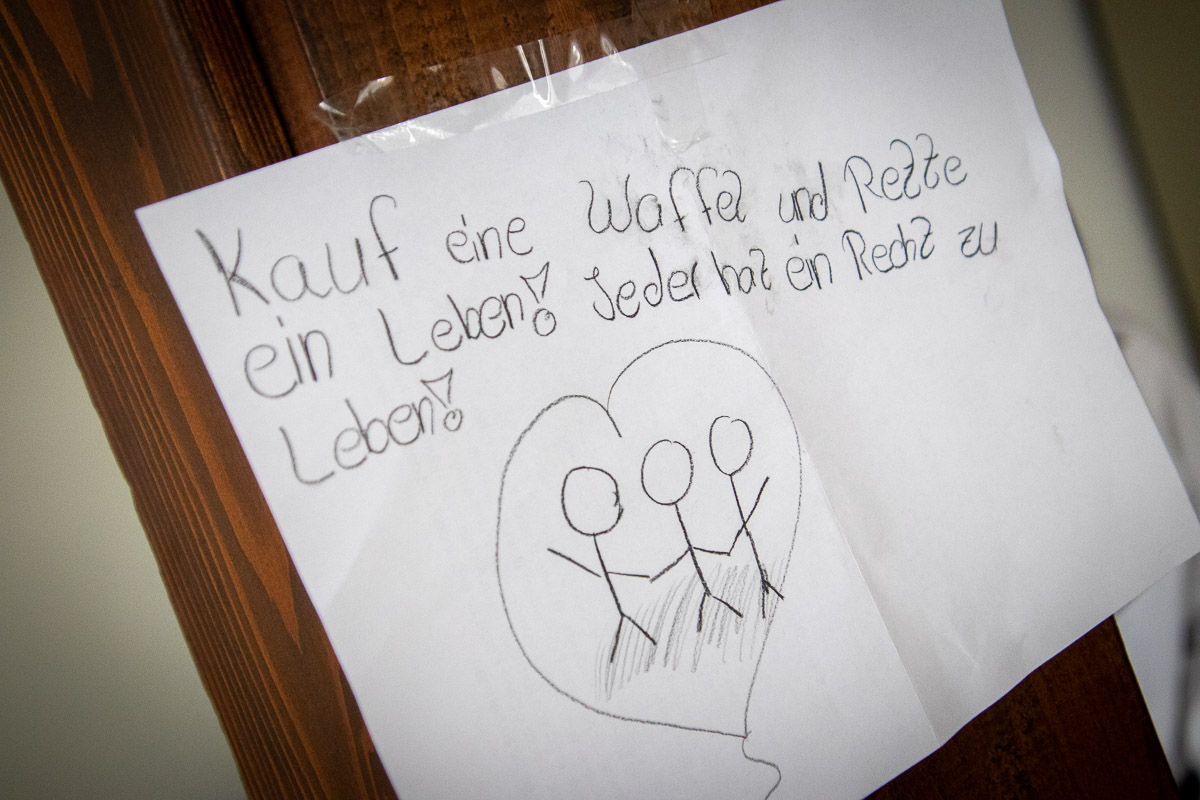 Kauf eine Waffel und Rette
ein Leben! Jeder hat ein Recht zu
Leben!